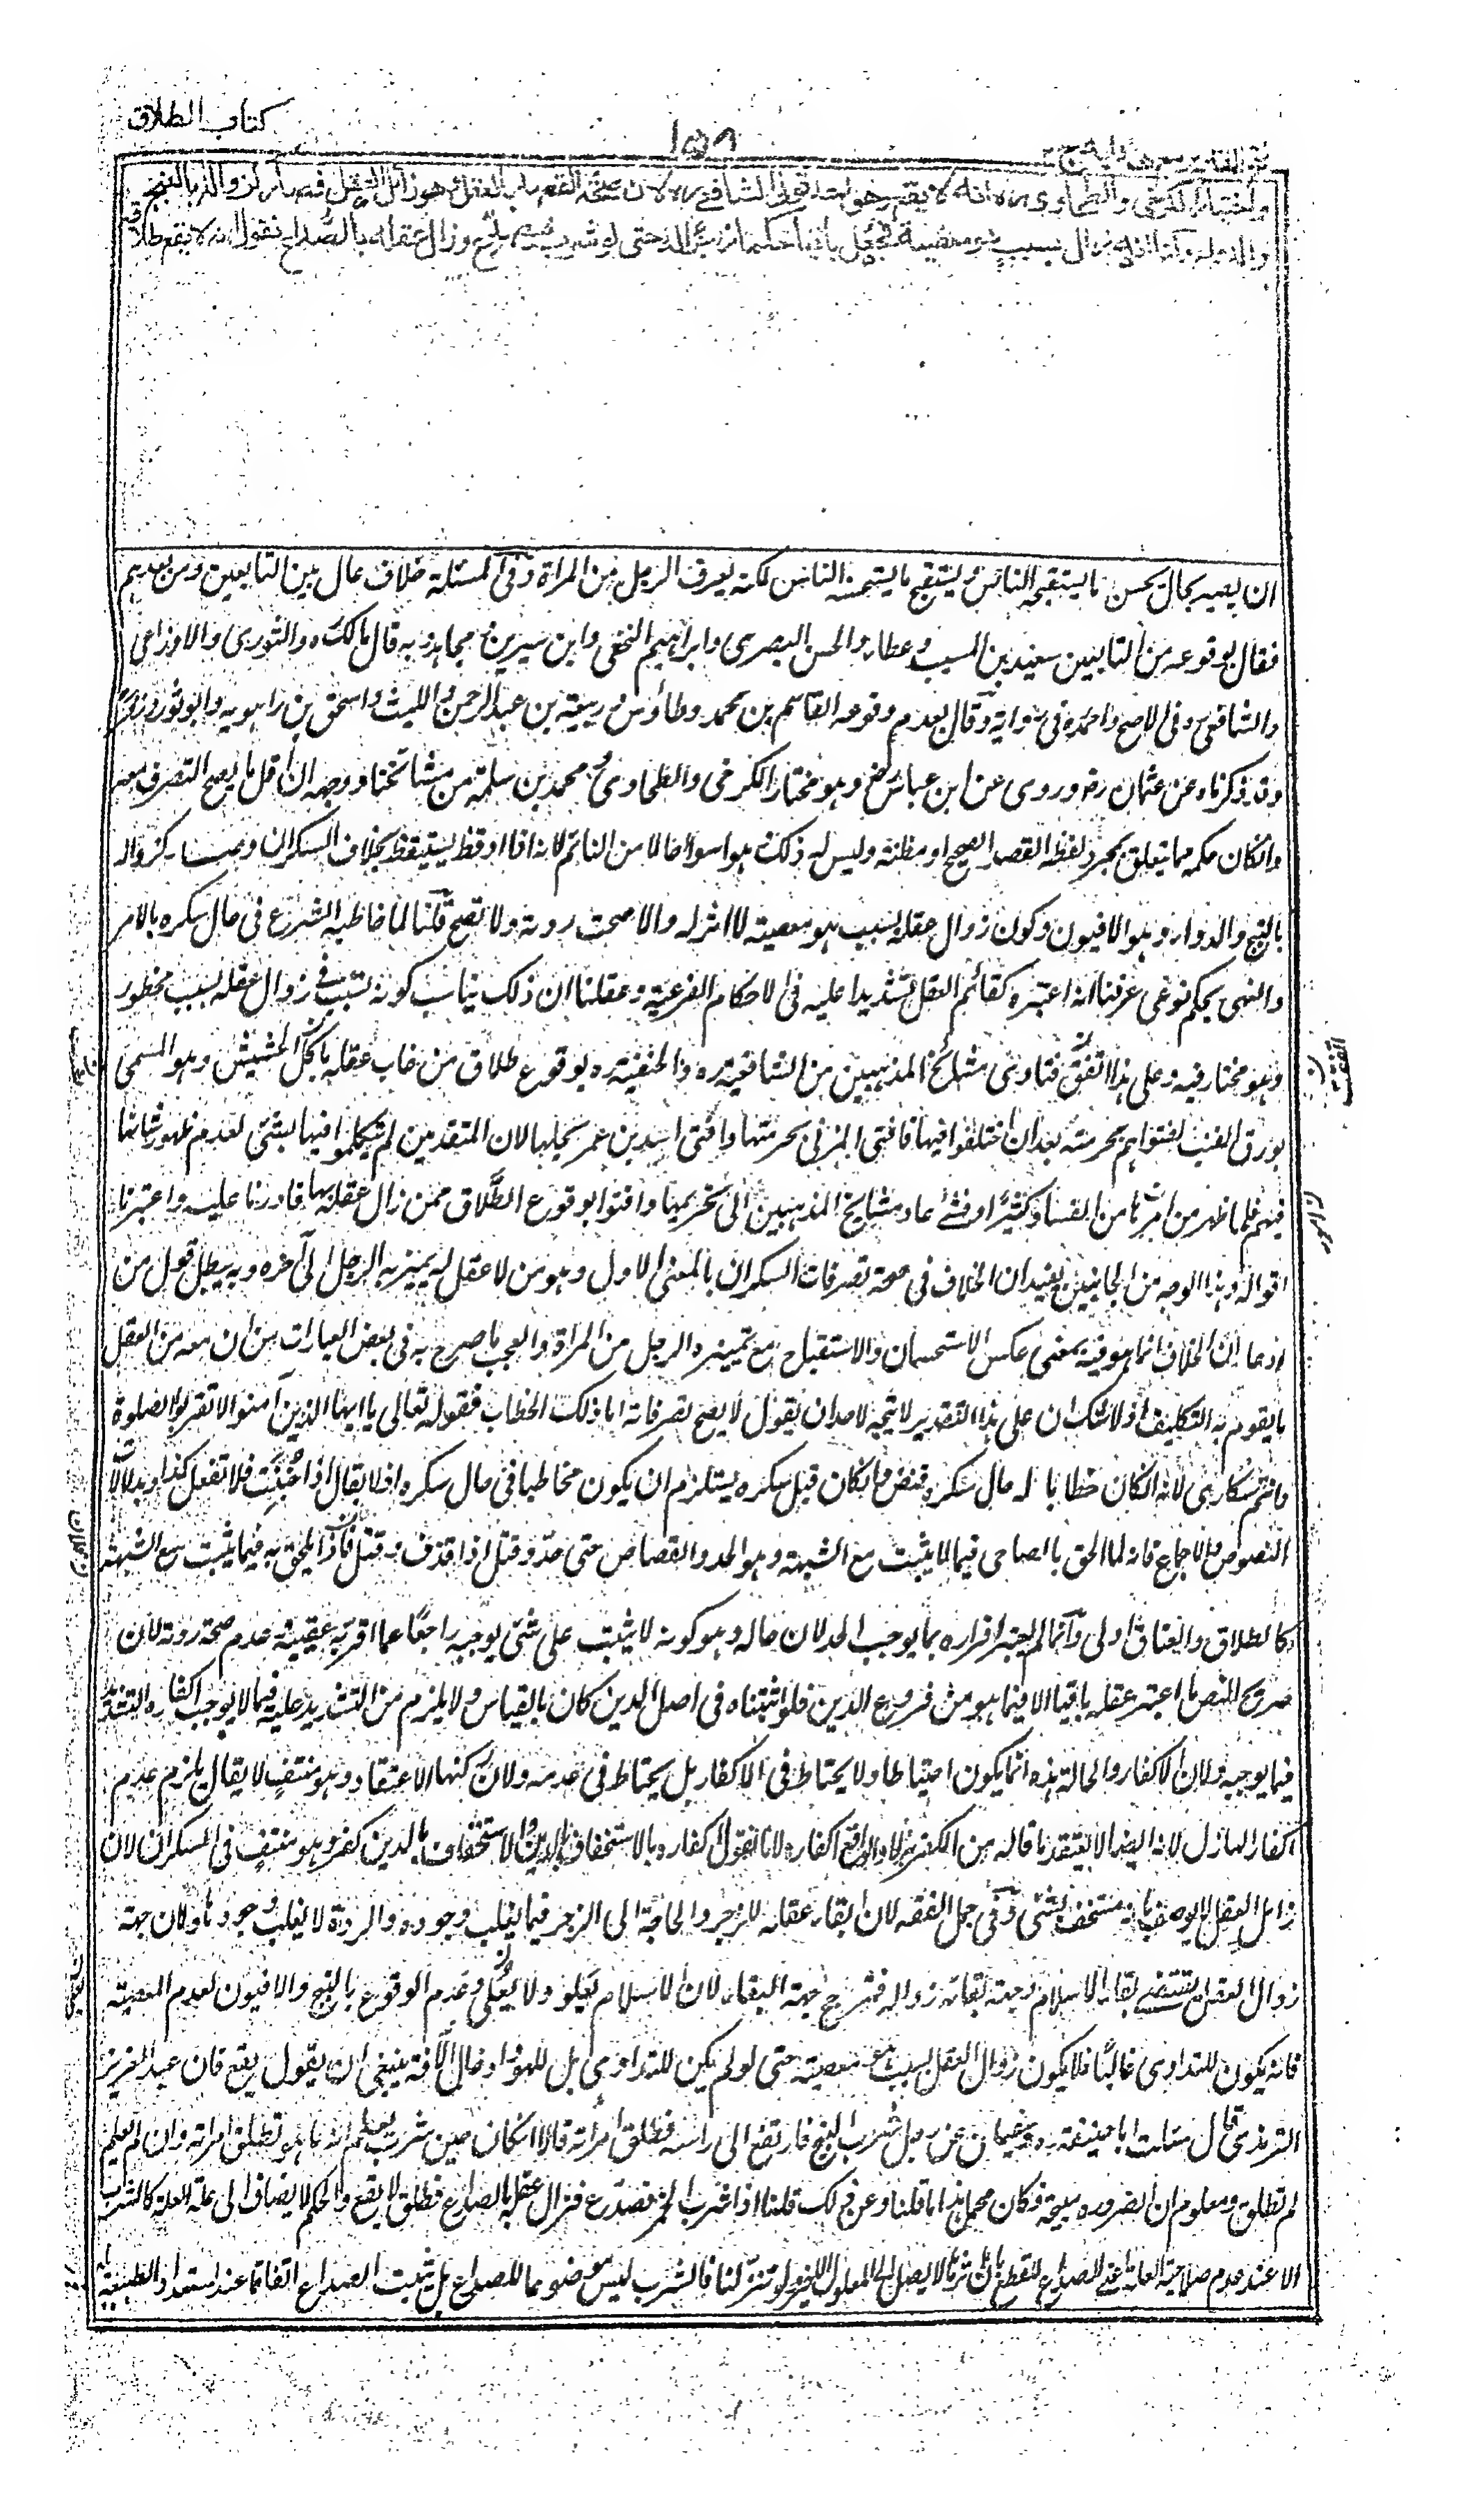 كتاب الطلاق
١٥٨
واختيار الكرخي والطحاوي انه لا يقع وهو احد قولي الشافعي لان صحة القصد بالعقل وهو زائل العقل فصار كزواله بالبنج
والدواء ولنا انه زال بسبب هو معصية فجعل باقيا حكما زجرا له حتى لو شرب فصدع وزال عقله بالصداع نقول انه لا يقع طلاقه
ان يصير بحال يحسن ما يستقبحه الناس ويستقبح ما يستحسنه الناس لكنه يعرف الرجل من المراة وفى المسئلة خلاف عال بين التابعين ومن بعدهم
فقال بوقوعه من التابعين سعيد بن المسيب وعطاء والحسن البصرى وابراهيم النخعى وابن سيرين ومجاهد وبه قال مالك والثورى والاوزاعى
والشافعى فى الاصح واحمد فى رواية وقال بعدم وقوعه القاسم بن محمد وطاوس وربيعة بن عبد الرحمن والليث واسحق بن راهويه وابو ثور وزفر
وقد ذكرناه عن عثمان رض وروى عن ابن عباس رض وهو مختار الكرخى والطحاوى ومحمد بن سلمة من مشائخنا ووجهه ان اقل ما يصح التصرف معه
وانكان حكمه مما يتعلق بمجرد لفظه القصد الصحيح او مظنته وليس له ذلك وهو اسوأ حالا من النائم لانه اذا اوقظ يستيقظ بخلاف السكران وصار كزواله
بالبنج والدواء وهو الافيون وكون زوال عقله بسبب هو معصية لا اثر له والا صحت ردته ولا تصح قلنا لما خاطبه الشرع فى حال سكره بالامر
والنهى بحكم فرعى عرفنا انه اعتبره كقائم العقل تشديدا عليه فى الاحكام الفرعية وعقلنا ان ذلك يناسب كونه تسبب فى زوال عقله بسبب محظور
وهو مختار فيه وعلى هذا اتفق فتاوى مشائخ المذهبين من الشافعية والحنفية بوقوع طلاق من غاب عقله باكل الحشيش وهو المسمى
بورق القنب لفتواهم بحرمته بعد ان اختلفوا فيها فافتى المزنى بحرمتها وافتى اسد بن عمر بحلها لان المتقدمين لم يتكلموا فيها بشئ لعدم ظهور شانها
فيهم فلما ظهر من امرها من الفساد كثيرا وفشى عاد مشايخ المذهبين الى تحريمها وافتوا بوقوع الطلاق ممن زال عقله بها فاوردنا عليه واعتبرنا
اقواله وهذا الوجه من الجانبين يفيد ان الخلاف فى صحة تصرفات السكران بالمعنى الاول وهو من لا عقل له يميز به الرجل الى آخره وبه يبطل قول من
ادعا ان الخلاف انما هو فيه بمعنى عكس الاستحسان والاستقباح مع تمييزه الرجل من المراة والعجب ما صرح به فى بعض العبارات من ان معه من العقل
ما يقوم به التكليف اذ لا شك ان على هذا التقدير لا يتجه لاحد ان يقول لا يصح تصرفاته اما ذلك الخطاب فقوله تعالى يا ايها الذين آمنوا لا تقربوا الصلوة
وانتم سكارى لانه انكان خطابا له حال سكره فنص وانكان قبل سكره يستلزم ان يكون مخاطبا فى حال سكره اذ لا يقال اذا جننت فلا تفعل كذا وبدلالات
النصوص والاجماع فانه لما الحق بالصاحى فيما لا يثبت مع الشبهة وهو الحد والقصاص حتى حد وقتل اذا قذف وقتل فلان يلحق به فيما يثبت مع الشبهة
كالطلاق والعتاق اولى وانما لم يعتبر اقراره بما يوجب الحد لان حاله وهو كونه لا يثبت على شئ يوجبه راجعا عما اقر به عقيبه وعدم صحة ردته لان
صريح النص ما اعتبر عقله باقيا الا فيما هو من فروع الدين فلو اثبتناه فى اصل الدين كان بالقياس ولا يلزم من التشديد عليه فيما لا يوجب اكفاره التشديد
فيما يوجبه ولان الاكفار والحالة هذه انما يكون احتياطا ولا يحتاط فى الاكفار بل يحتاط فى عدمه ولان ركنها الاعتقاد وهو منتف لا يقال يلزم عدم
اكفار الهازل لانه ايضا لا يعتقد ما قاله من الكفر هزلا والواقع اكفاره لانا نقول اكفاره بالاستخفاف بالدين والاستخفاف بالدين كفر وهو منتف فى السكران لان
زائل العقل لا يوصف بانه مستخف بشئ وفى جمل الفقه لان بقاء عقله للزجر والحاجة الى الزجر فيما يغلب وجوده والردة لا يغلب وجودها ولان جهة
زوال العقل يقتضى بقاء الاسلام وجهة بقائه زواله فترجح جهة البقاء لان الاسلام يعلو ولا يعلى وعدم الوقوع بالبنج والافيون لعدم المعصية
فانه يكون للتداوى غالبا فلا يكون زوال العقل بسبب هو معصية حتى لو لم يكن للتداوى بل للهو وادخال الآفة ينبغى ان يقول يقع فان عبد العزيز
الترمذى قال سئلت ابا حنيفة وسفيان عن رجل شرب البنج فارتفع الى راسه فطلق امراته قالا انكان حين شرب يعلم انه ما هو تطلق امراته وان لم يعلم
لم تطلق ومعلوم ان الضرورة مبيحة فكان محمل هذا ما قلنا وعن ذلك قلنا اذا شرب الخمر فصدع فزال عقله بالصداع فطلق لا يقع والحكم لا يضاف الى علة العلة كالشرب
الا عند عدم صلاحية العلة اعنى الصداع للقطع بان اثرها لا يصل الى المعلول الاخير ولو تنزلنا فالشرب ليس موضوعا للصداع بل يثبت الصداع اتفاقا عند استعداد الطبيعة له